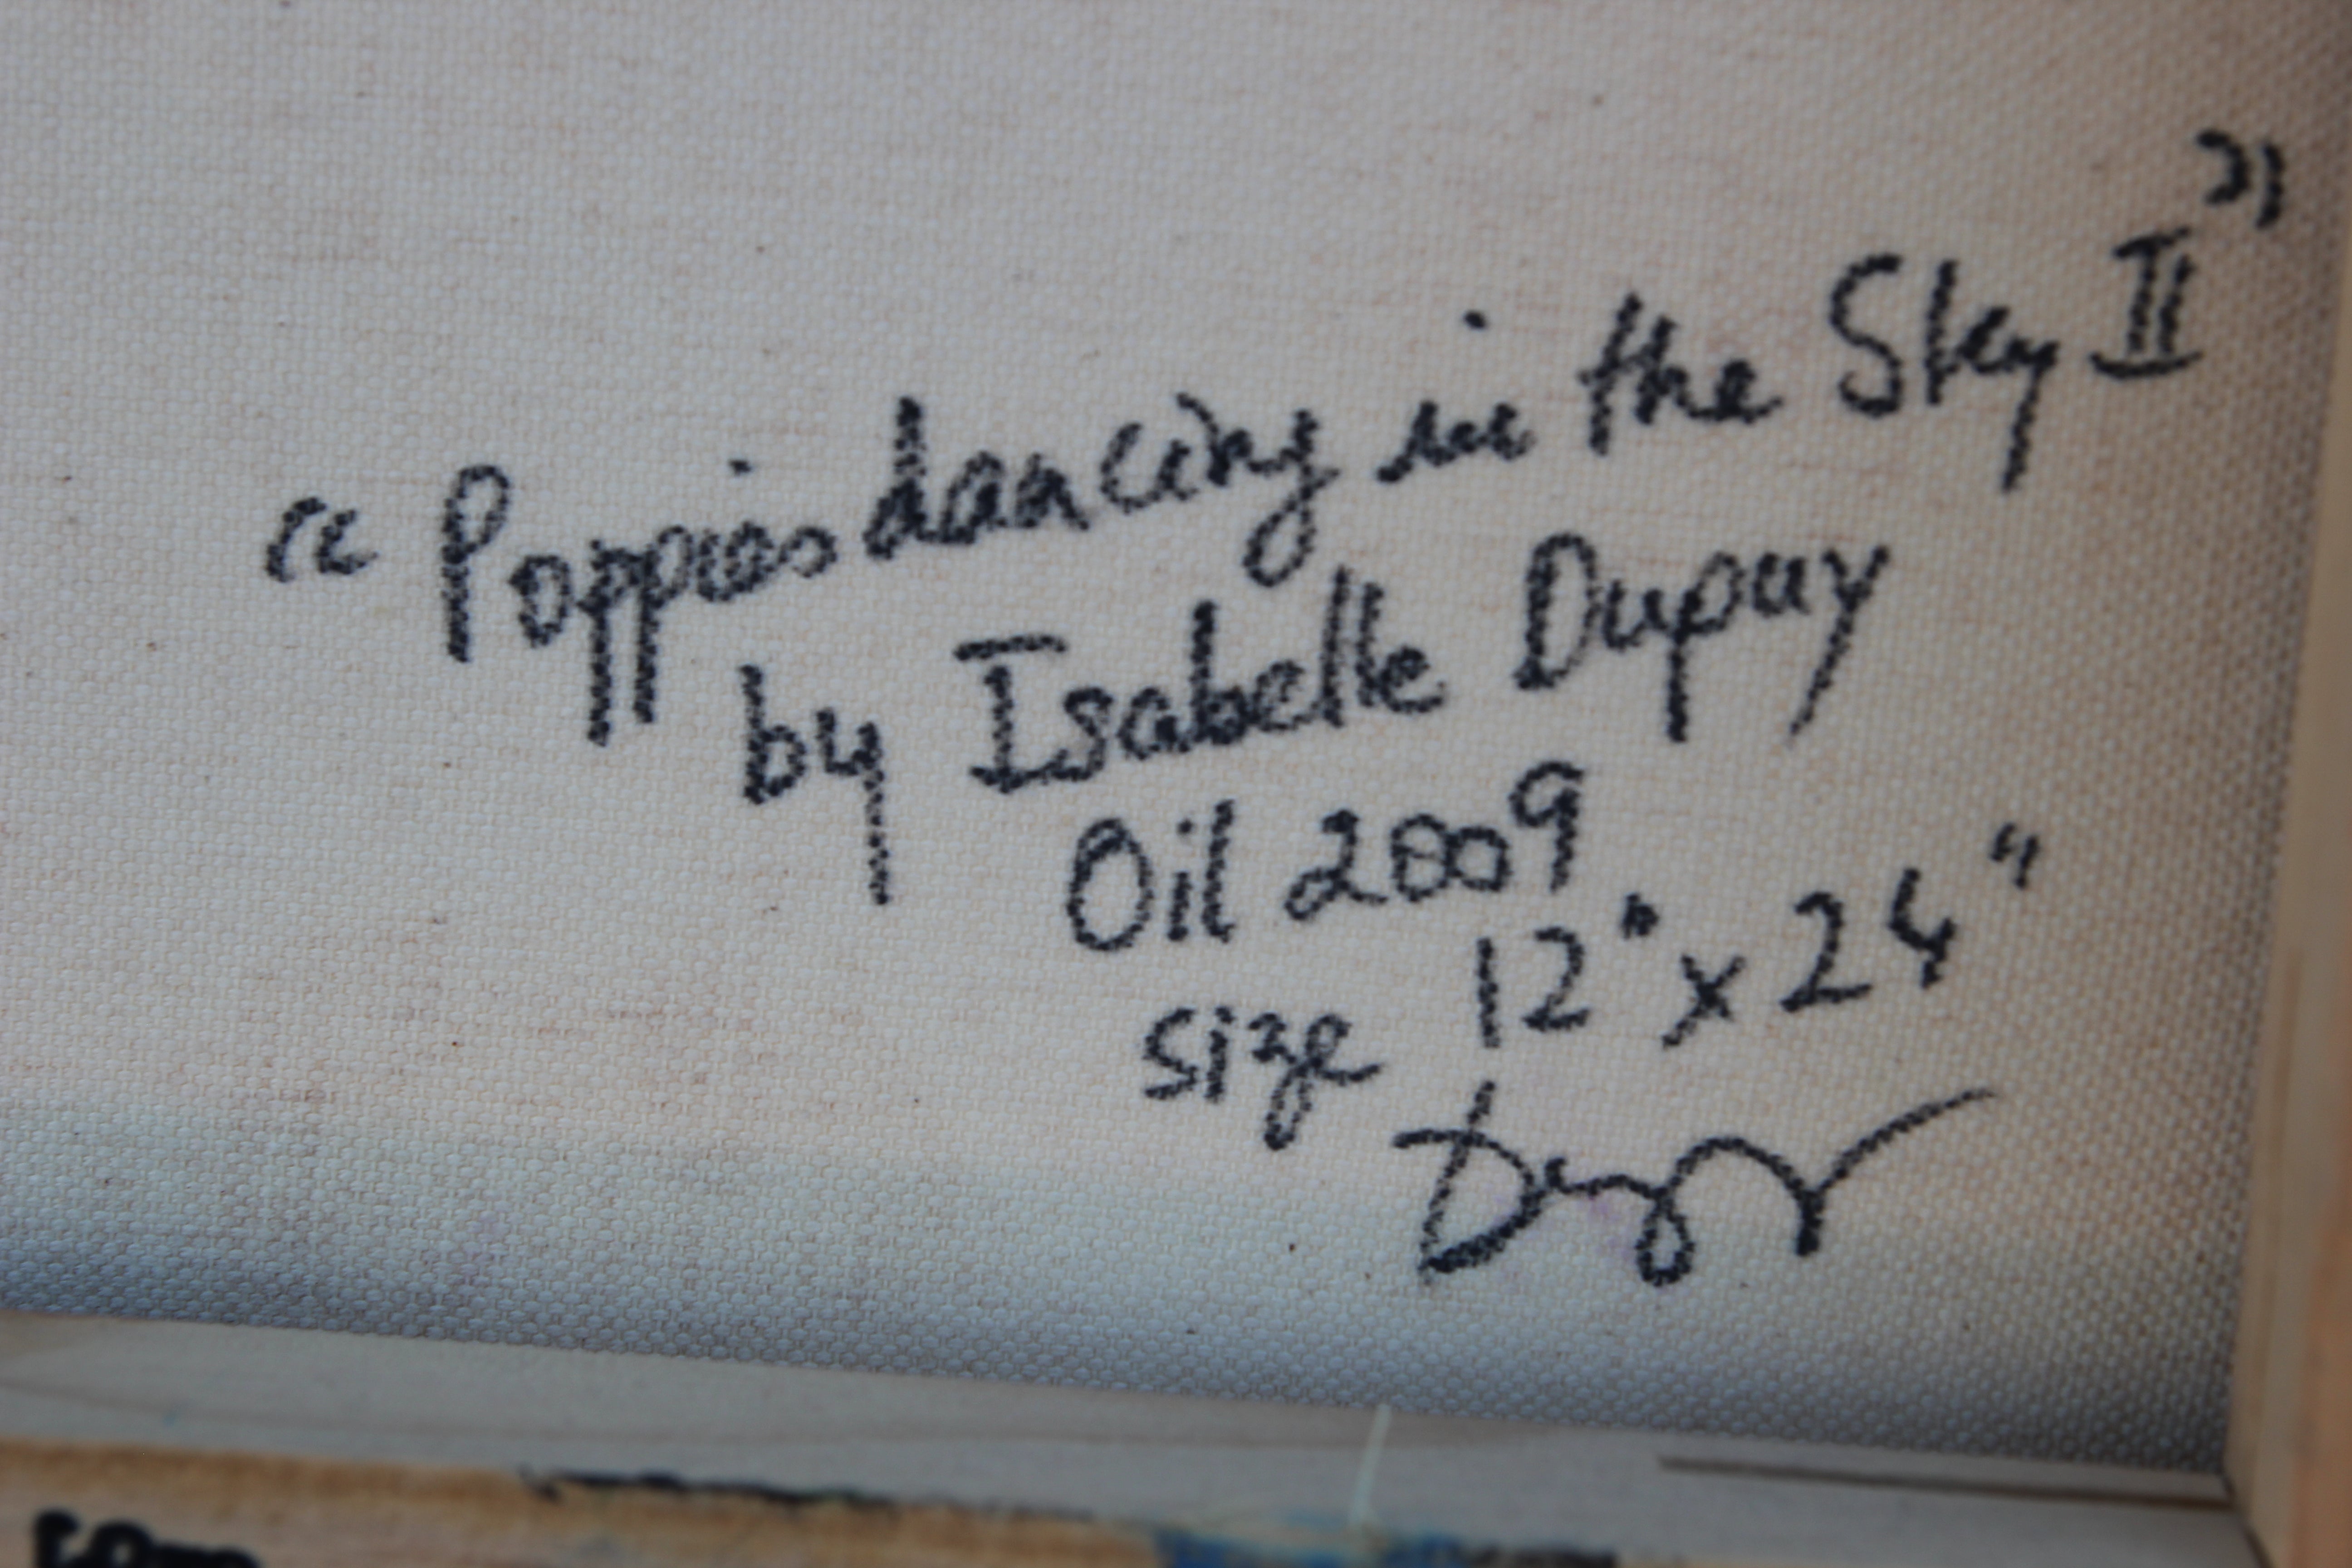 “Poppies dancing in the Sky II”
by Isabelle Dupuy
Oil 2009
size 12" x 24"